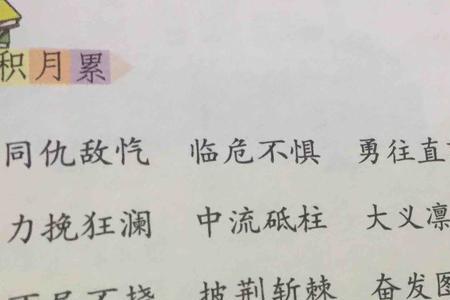 积月累
同仇敌忾 临危不惧 勇往直
力挽狂澜 中流砥柱 大义凛
不屈不挠 披荆斩棘 奋发图